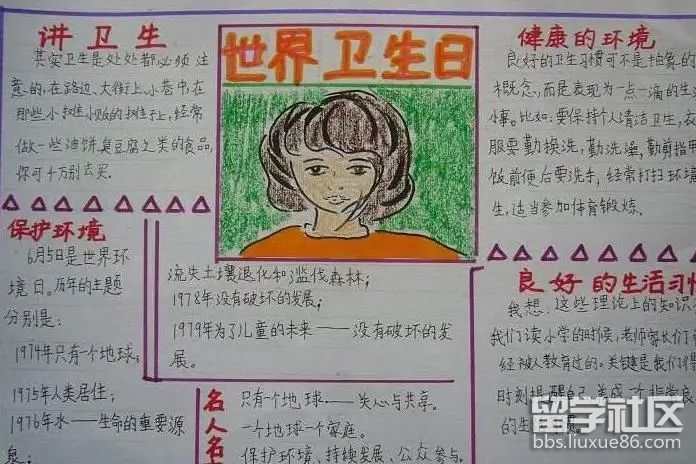 讲卫生
其实卫生是处处都必须注
意的,在路边、大街上,小巷中,在
那些小摊小贩的摊子上,经常
做一些油饼、臭豆腐之类的食品,
你可千万别去买.
世界卫生日
健康的环境
良好的卫生习惯可不是抽象的
概念,而是表现为一点一滴的生
小事。比如:要保持个人清洁卫生,衣
服要勤换洗,勤洗澡,勤剪指甲
饭前便后要洗手,经常打扫环境
生,适当参加体育锻炼。
保护环境
6月5日是世界环
境日。历年的主题
分别是:
1974年只有一个地球;
1975年人类居住;
1976年水——生命的重要源
泉;
流失土壤退化和滥伐森林;
1978年没有破坏的发展;
1979年为了儿童的未来——没有破坏的发
展。
名人名
只有一个地球——关心与共享。
一个地球一个家庭。
保护环境、持续发展、公众参与。
良好的生活习
我想,这些理论上的知识,
我们读小学的时候,老师家长们
经被人教育过的。关键是我们得
时刻提醒自己,养成一个非常良
的生
留学社区
bbs.liuxue86.com